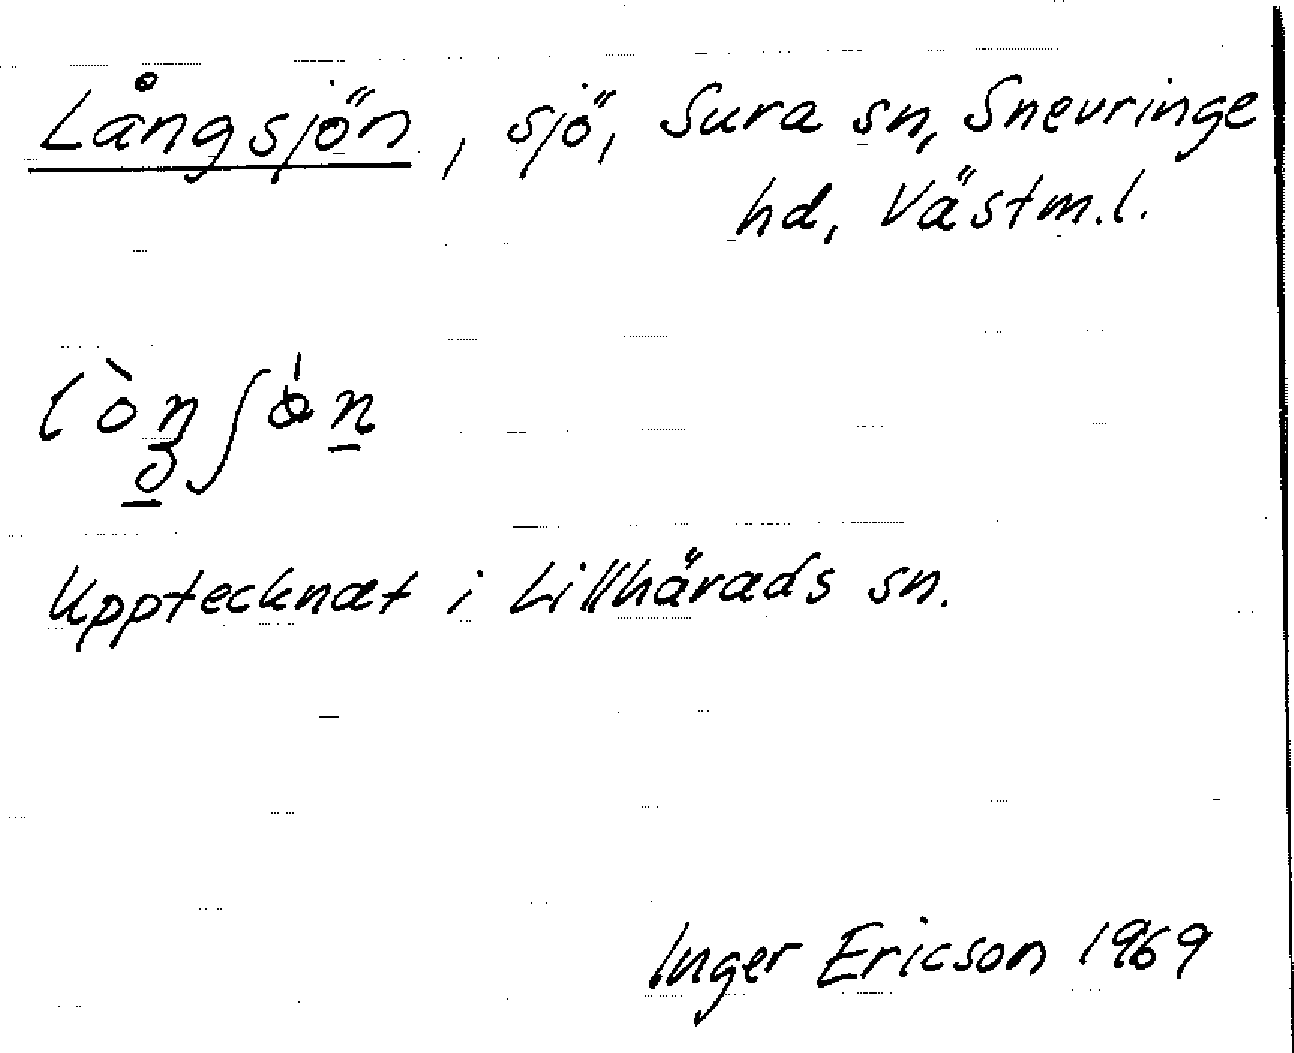 Långsjön, sjö, Sura sn, Snevringe
hd, Västm.l.
Upptecknat i Lillhärads sn.
Inger Ericson 1969